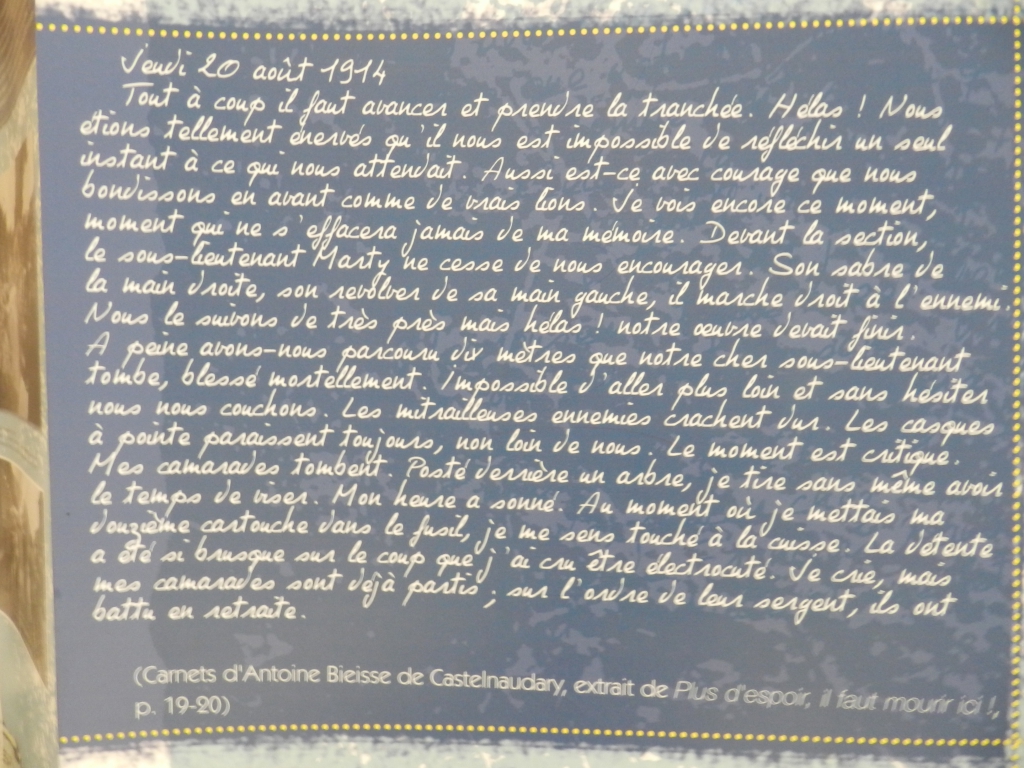 Jeudi 20 août 1914
Tout à coup il faut avancer et prendre la tranchée. Hélas ! Nous
étions tellement énervés qu'il nous est impossible de réfléchir un seul
instant à ce qui nous attendait. Aussi est-ce avec courage que nous
bondissons en avant comme de vrais lions. Je vois encore ce moment,
moment qui ne s'effacera jamais de ma mémoire. Devant la section,
le sous-lieutenant Marty ne cesse de nous encourager. Son sabre de
la main droite, son revolver de sa main gauche, il marche droit à l'ennemi.
Nous le suivons de très près mais hélas ! notre œuvre devait finir.
A peine avons-nous parcouru dix mètres que notre cher sous-lieutenant
tombe, blessé mortellement. Impossible d'aller plus loin et sans hésiter
nous nous couchons. Les mitrailleuses ennemies crachent dur. Les casques
à pointe paraissent toujours, non loin de nous. Le moment est critique.
Mes camarades tombent. Posté derrière un arbre, je tire sans même avoir
le temps de viser. Mon heure a sonné. Au moment où je mettais ma
douzième cartouche dans le fusil, je me sens touché à la cuisse. La détente
a été si brusque sur le coup que j'ai cru être électrocuté. Je crie, mais
mes camarades sont déjà partis ; sur l'ordre de leur sergent, ils ont
battu en retraite.
(Carnets d'Antoine Bieisse de Castelnaudary, extrait de Plus d'espoir, il faut mourir ici !,
p. 19-20)